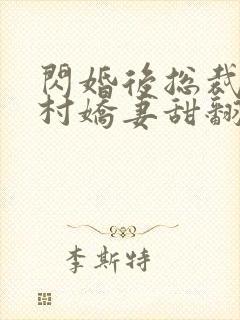 閃婚後總裁
村嬌妻甜翻
李斯特